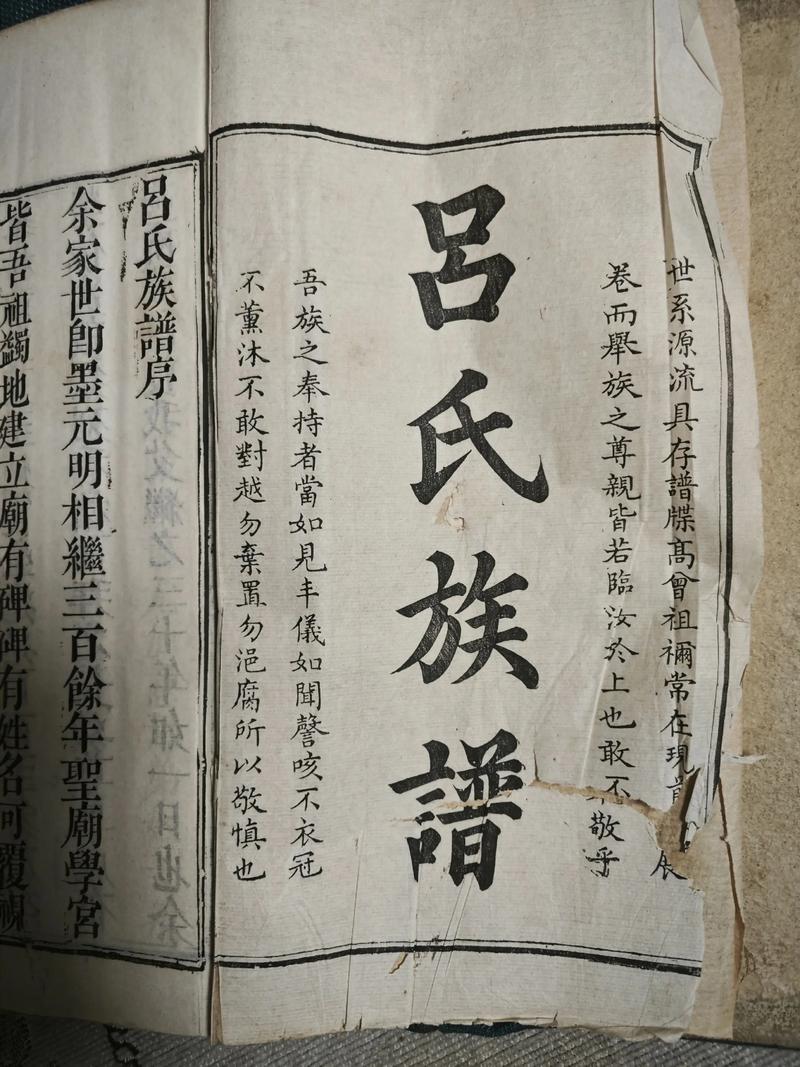 世系源流具存譜牒高曾祖禰常在現前展
卷而舉族之尊親皆若臨汝於上也敢不敬乎
呂氏族譜
吾族之奉持者當如見丰儀如聞謦咳不衣冠
不薰沐不敢對越勿棄置勿浥腐所以敬慎也
呂氏族譜序
余家世卽墨元明相繼三百餘年聖廟學宮
皆吾祖蠲地建立廟有碑碑有姓名可覆視